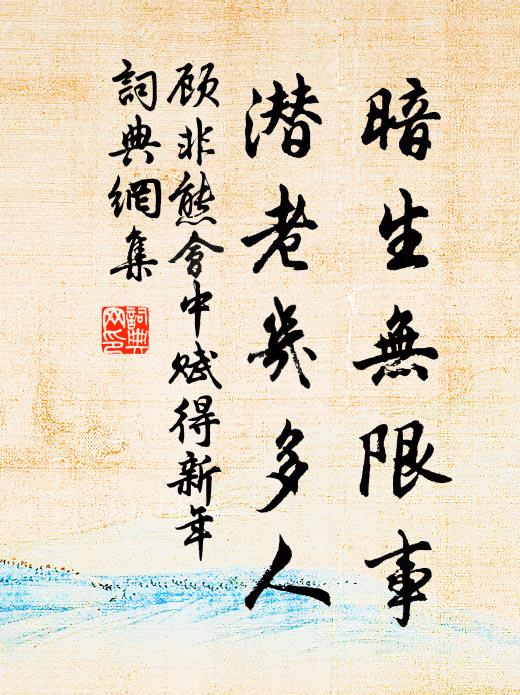 暗生無限事
潜老幾多人
顾非熊會中賦得新年
詞典網集
詞典网印